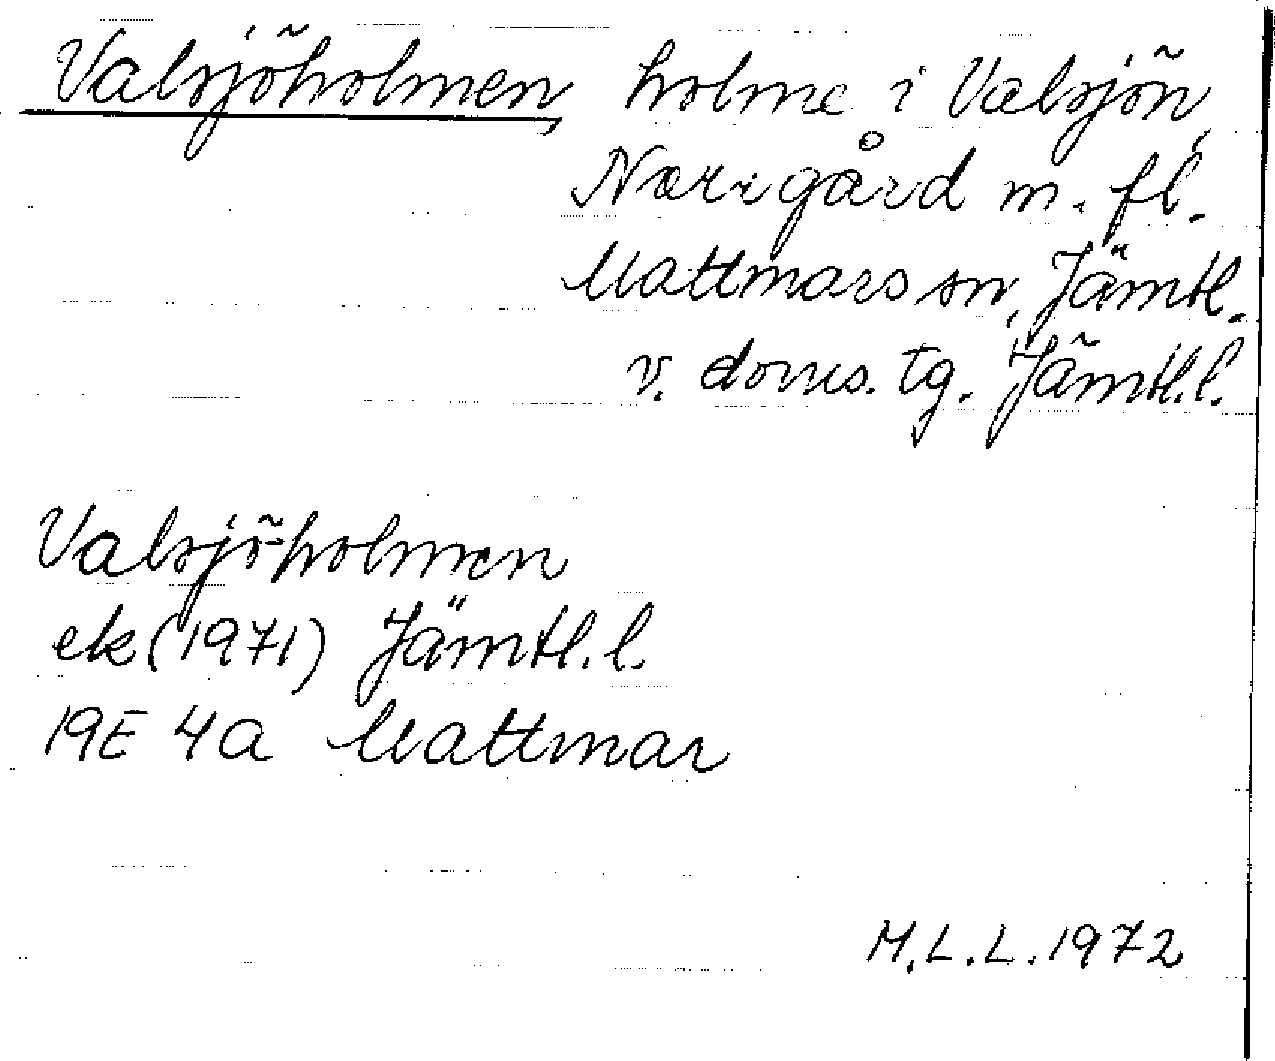 Valsjöholmen, holme i Valsjön,
Norrgård m. fl.
Mattmars sn, Jämtl.
v. doms. tg. Jämtl.l.
Valsjöholmen
ek (1971) Jämtl. l.
19E 4a Mattmar
M.L.L. 1972